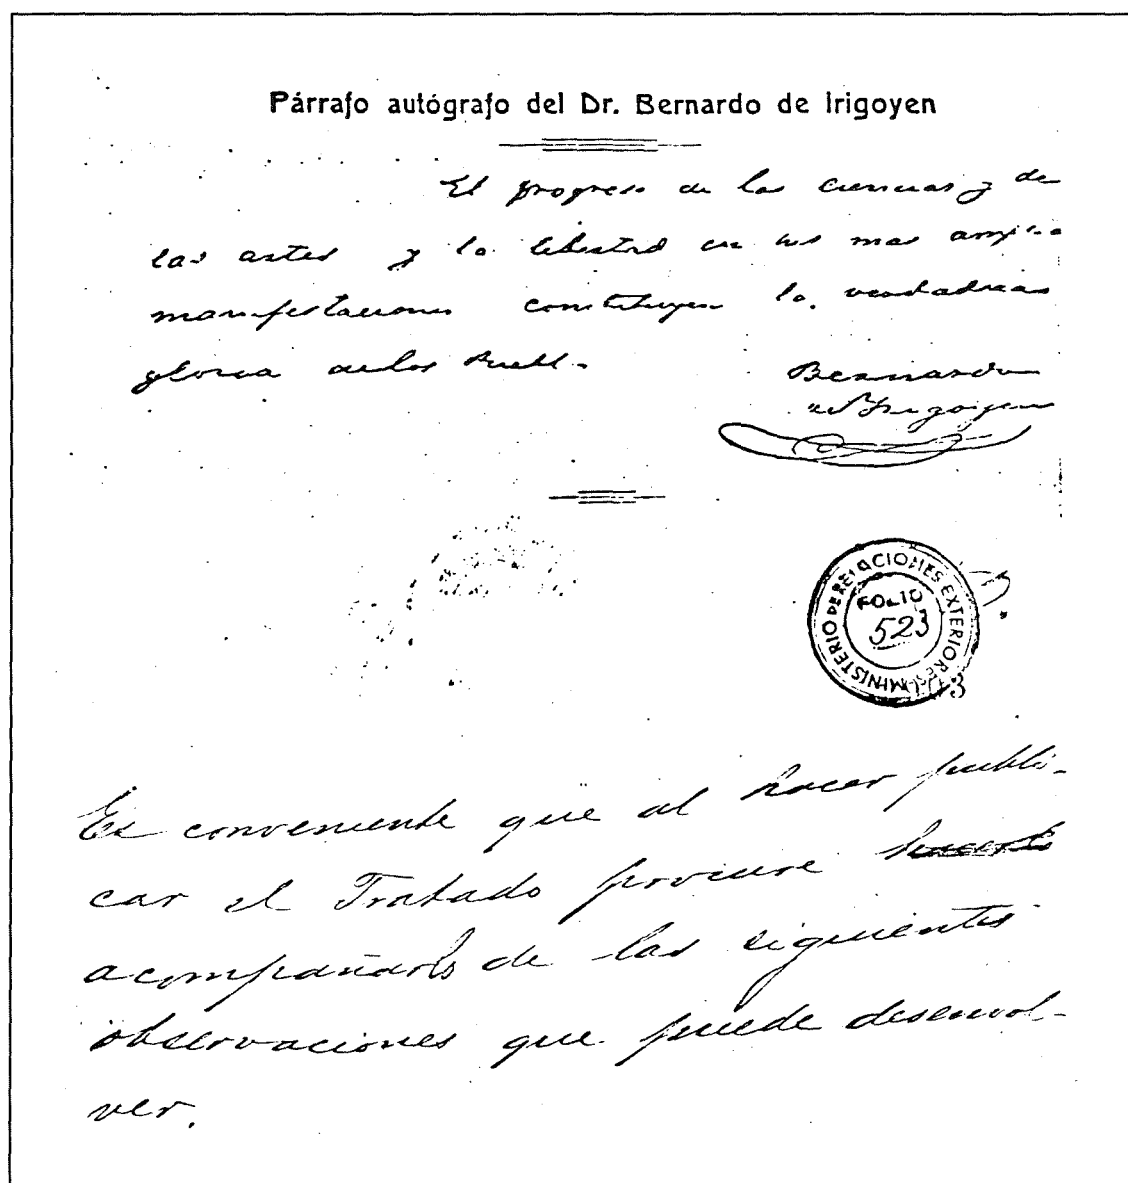 Párrafo autógrafo del Dr. Bernardo de Irigoyen
El progreso de las ciencias y de
las artes y la libertad en sus mas amplias
manifestaciones constituyen la verdadera
gloria de los Puebl.
Bernardo
de Irigoyen
MINISTERIO DE RELACIONES EXTERIORES
FOLIO
523
Es conveniente que al hacer publi-
car el Tratado procure
acompañarlo de las siguientes
observaciones que puede desenvol-
ver.